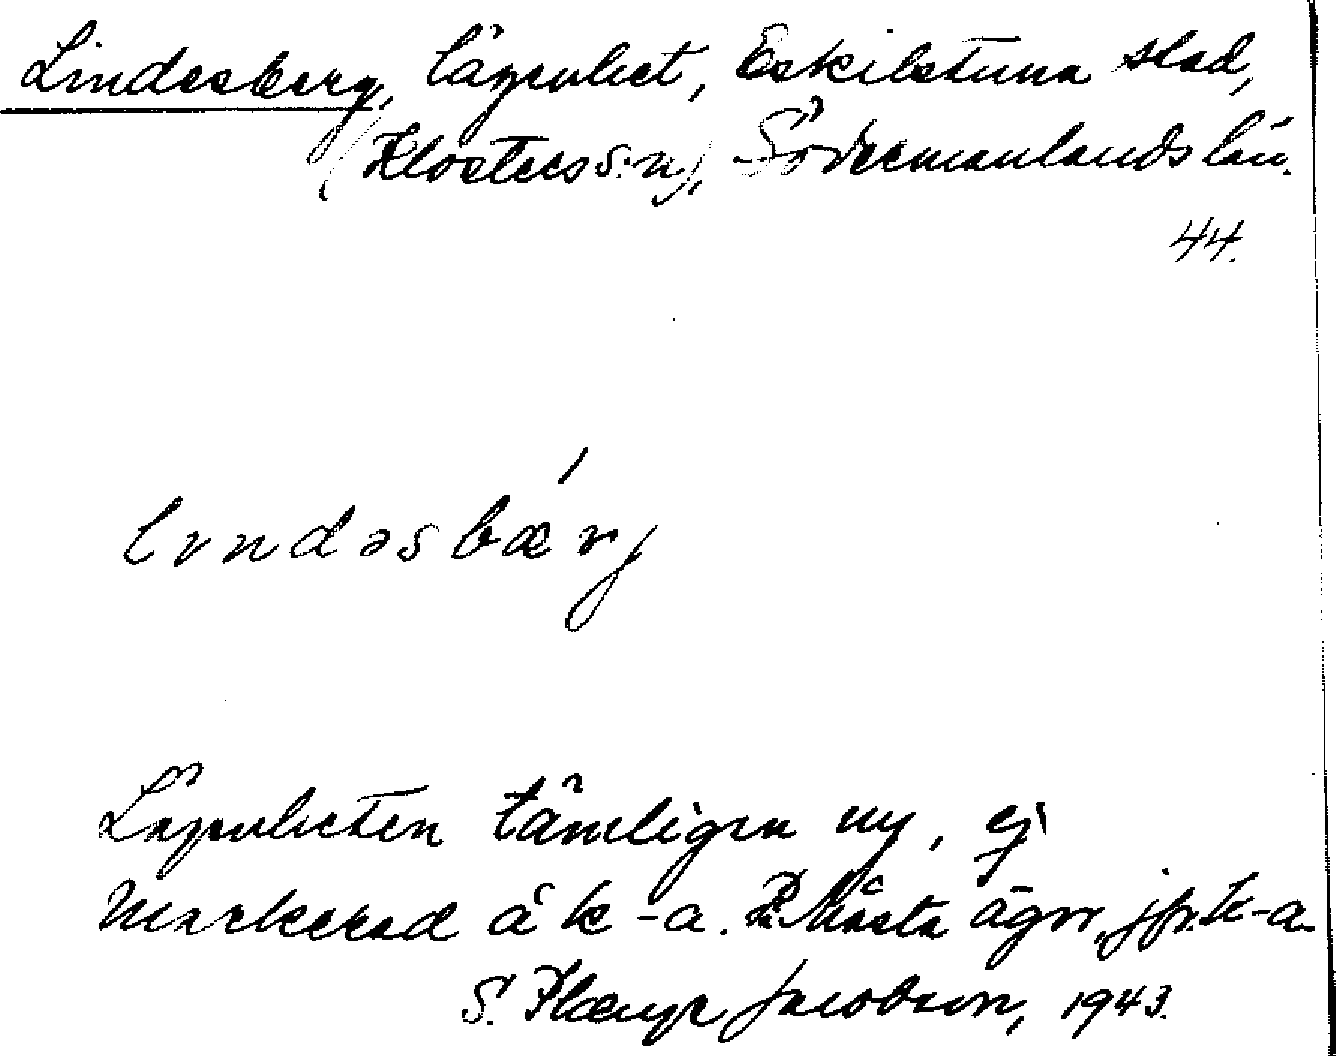 Lindesberg, lägenhet, Eskilstuna stad,
(Klosters s:n), Södermanlands län.
44.
lındəsbæŕj
Lägenheten tämligen ny, ej
markerad å k-a. På Måsta ägor, jfr. k-a.
S. Jacobson, 1943.